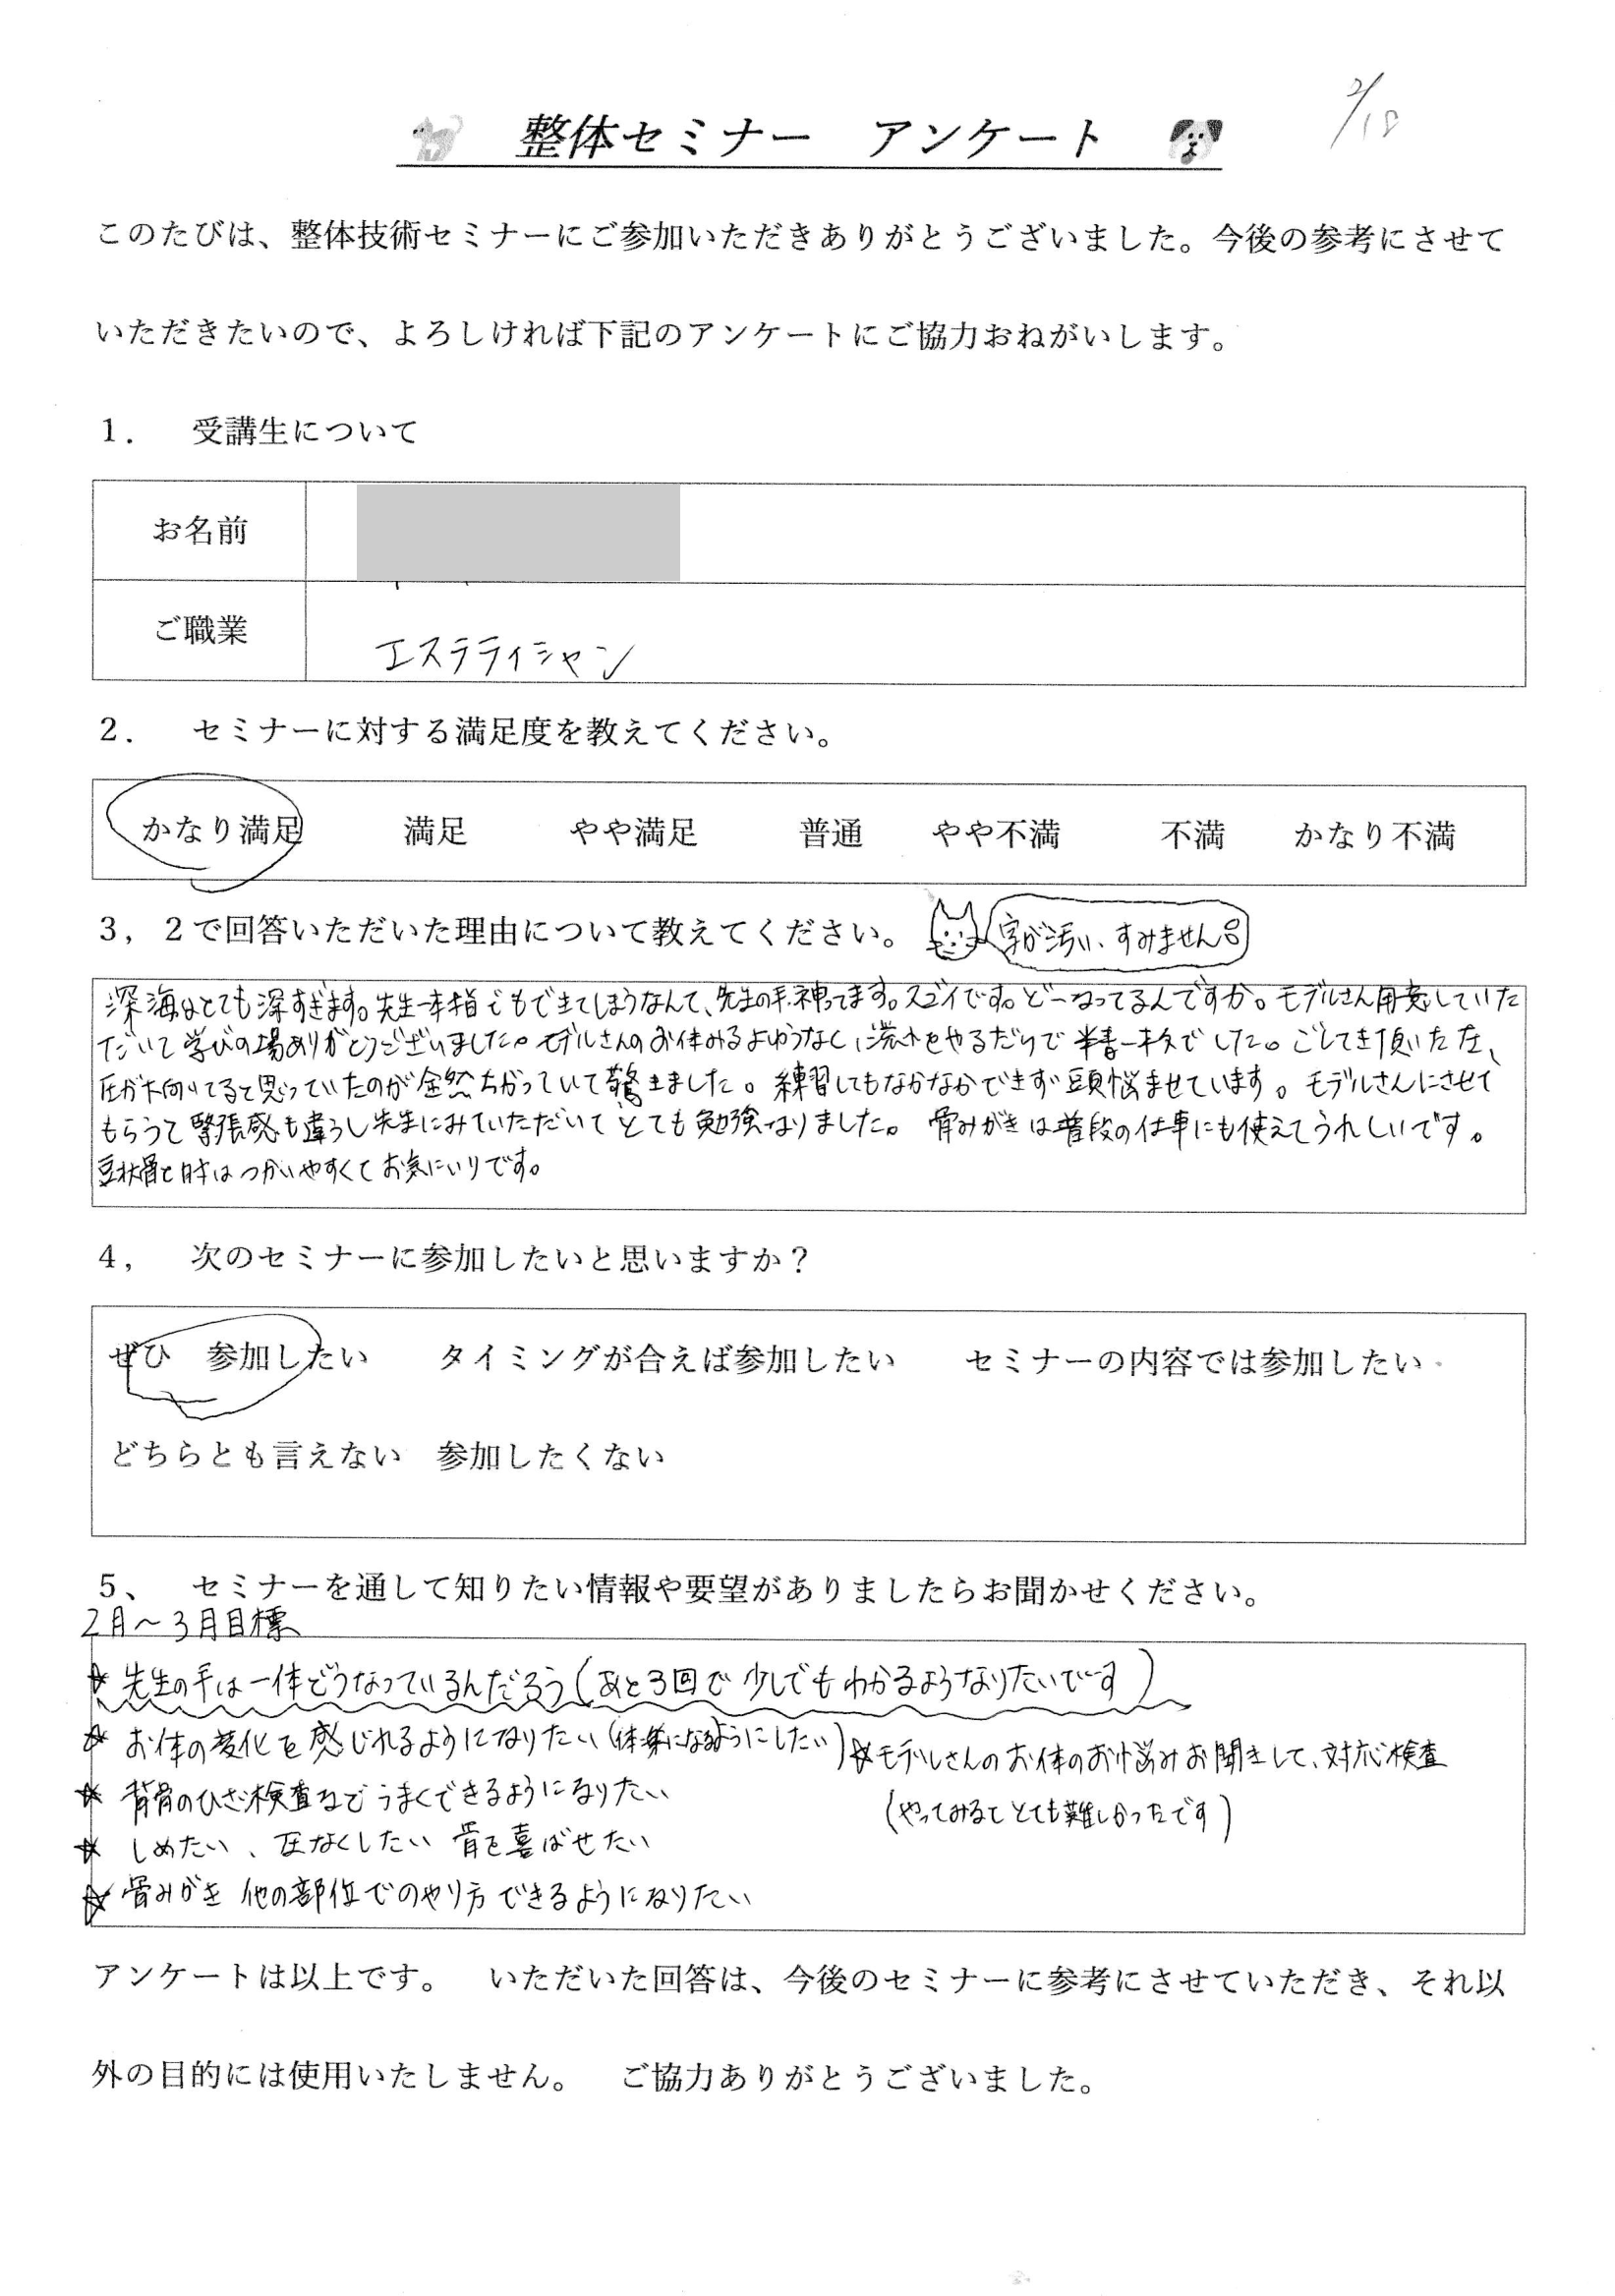 2/18
整体セミナー　アンケート
このたびは、整体技術セミナーにご参加いただきありがとうございました。今後の参考にさせて
いただきたいので、よろしければ下記のアンケートにご協力おねがいします。
１．　受講生について
お名前
ご職業　エステティシャン
２．　セミナーに対する満足度を教えてください。
かなり満足　満足　やや満足　普通　やや不満　不満　かなり不満
３，２で回答いただいた理由について教えてください。　字が汚い、すみません
深海はとても深すぎます。先生一本指でもできてしまうなんて、先生の手、神ってます。スゴイです。どーなってるんですか。モデルさん用意していた
だいて学びの場ありがとうございました。モデルさんのお体みるよゆうなく、流れをやるだけで精一杯でした。ごしてき頂いた左、
圧が下向いてると思っていたのが全然ちがっていて驚きました。練習してもなかなかできず頭悩ませています。モデルさんにさせて
もらうて緊張感も違うし先生にみていただいてとても勉強なりました。骨みがきは普段の仕事にも使えてうれしいです。
豆状骨と肘はつかいやすくてお気にいりです。
４，　次のセミナーに参加したいと思いますか？
ぜひ　参加したい　タイミングが合えば参加したい　セミナーの内容では参加したい
どちらとも言えない　参加したくない
５、　セミナーを通して知りたい情報や要望がありましたらお聞かせください。
2月～3月目標
☆ 先生の手は一体どうなっているんだろう(あと3回で少しでもわかるようなりたいです)
☆ お体の変化を感じれるようになりたい(体楽になるようにしたい)
☆モデルさんのお体のお悩みお聞きして、対応検査
(やってみるてとても難しかったです)
☆ 背骨のひざ検査などうまくできるようになりたい
☆ しめたい、圧なくしたい 骨を喜ばせたい
☆ 骨みがき 他の部位でのやり方できるようになりたい
アンケートは以上です。　いただいた回答は、今後のセミナーに参考にさせていただき、それ以
外の目的には使用いたしません。　ご協力ありがとうございました。